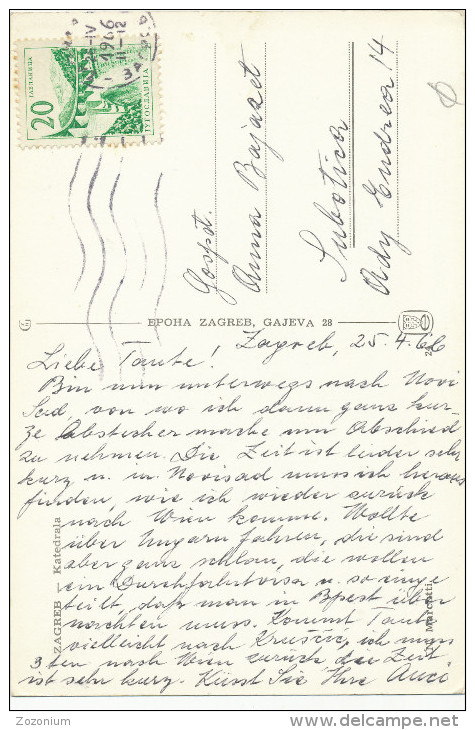 JABLANICA
20
JUGOSLAVIJA
ЈУГОСЛАВИЈА
25-IV
1966
11-12
Gospd.
Anna Bajazet
Subotica
Ady Endrea 14
EPOHA ZAGREB, GAJEVA 28
Zagreb, 25.4.66
Liebe Tante!
Bin nun unterwegs nach Novi
Sad, von wo ich dann ganz kur-
ze Abstecher mache um Abschied
zu nehmen. Die Zeit ist leider sehr
kurz u. in Novisad muss ich heraus
finden, wie ich wieder zurück
nach Wien komme. Wollte
über Ungarn fahren, die sind
aber ganz schlau, die wollen
ein Durchfahrtvisa u. so einge
teilt, daß man in Bpest über
nachten muss. Kommt Tante
vielleicht nach Kruščić, ich muss
3ten nach Wien zurück die Zeit
ist sehr kurz. Küsst Sie Ihre
ZAGREB — Katedrala
Marčatti
Zozonium
http://www.delcampe.net